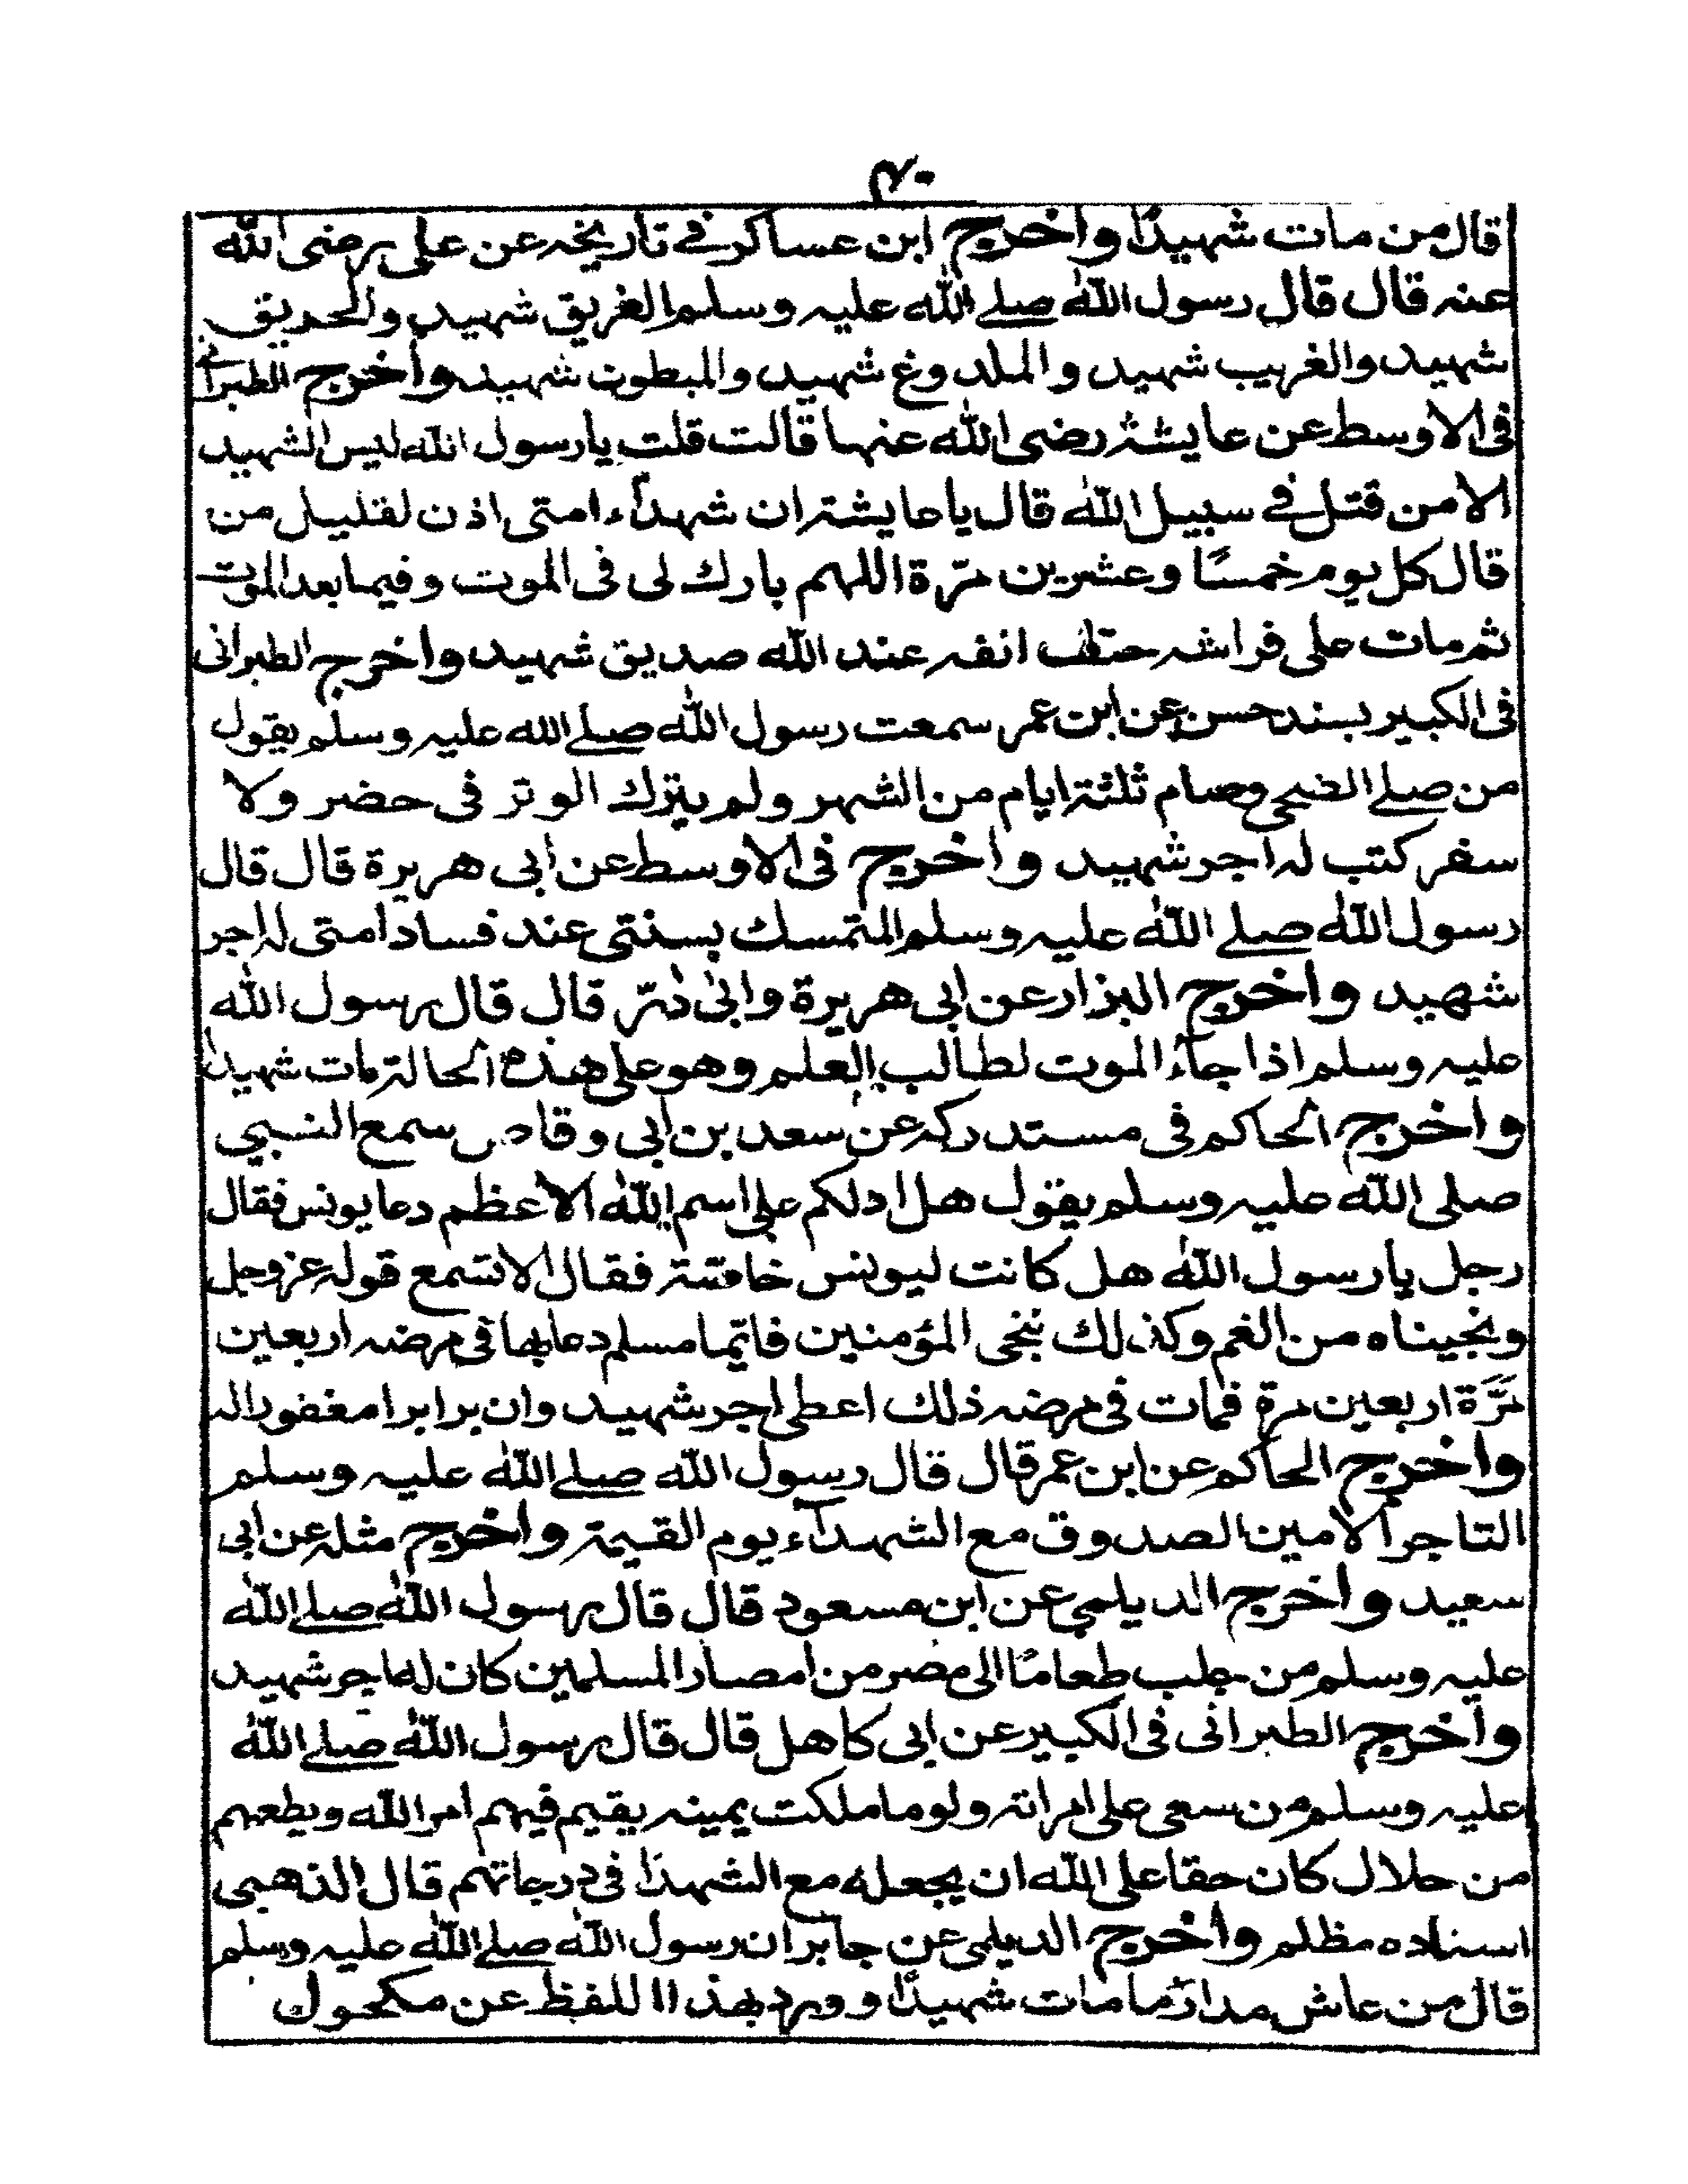 ٤٠
قال من مات شهيدًا واخرج ابن عساكر في تاريخه عن علي رضى الله
عنه قال قال رسول الله صلے الله عليه وسلم الغريق شهيد والحريق
شهيد والغريب شهيد والملدوغ شهيد والمبطون شهيد واخرج الطبرانے
فى الاوسط عن عايشة رضى الله عنها قالت قلت يا رسول الله ليس الشهيد
الا من قتل فے سبيل الله قال يا عايشة ان شهدآء امتى اذن لقليل من
قال كل يوم خمسًا وعشرين مرّة اللهم بارك لى فى الموت وفيما بعد الموت
ثم مات على فراشه حتف انفه عند الله صديق شهيد واخرج الطبرانى
فى الكبير بسند حسن عن ابن عمر سمعت رسول الله صلے الله عليه وسلم يقول
من صلے الضحى وصام ثلثة ايام من الشهر ولم يترك الوتر فى حضر ولا
سفر كتب له اجر شهيد واخرج فى الاوسط عن ابى هريرة قال قال
رسول الله صلے الله عليه وسلم المتمسك بسنتى عند فساد امتى له اجر
شهيد واخرج البزار عن ابى هريرة وابى ذرّ قال قال رسول الله
عليه وسلم اذا جآء الموت لطالب العلم وهو على هذه الحالة مات شهيدًا
واخرج الحاكم فى مستدركه عن سعد بن ابى وقاص سمع النبي
صلى الله عليه وسلم يقول هل ادلكم على اسم الله الاعظم دعا يونس فقال
رجل يا رسول الله هل كانت ليونس خاصّة فقال الا تسمع قوله عز وجل
ونجيناه من الغم وكذلك ننجى المؤمنين فايّما مسلم دعا بها فى مرضه اربعين
مَرَّة اربعين مرة فمات فى مرضه ذلك اعطى اجر شهيد وان برا برا مغفورا له
واخرج الحاكم عن ابن عمر قال قال رسول الله صلے الله عليه وسلم
التاجر الامين الصدوق مع الشهدآء يوم القيمة واخرج مثله عن ابى
سعيد واخرج الديلمي عن ابن مسعود قال قال رسول الله صلے الله
عليه وسلم من جلب طعامًا الى مصر من امصار المسلمين كان له اجر شهيد
واخرج الطبرانى فى الكبير عن ابى كاهل قال قال رسول الله صلے الله
عليه وسلم من سعى على امراته ولو ما ملكت يمينه يقيم فيهم امر الله ويطعمهم
من حلال كان حقا على الله ان يجعله مع الشهدا فى درجاتهم قال الذهبى
اسناده مظلم واخرج الديلمى عن جابر ان رسول الله صلے الله عليه وسلم
قال من عاش مداريًا مات شهيدًا وورد بهذا اللفظ عن مكحول